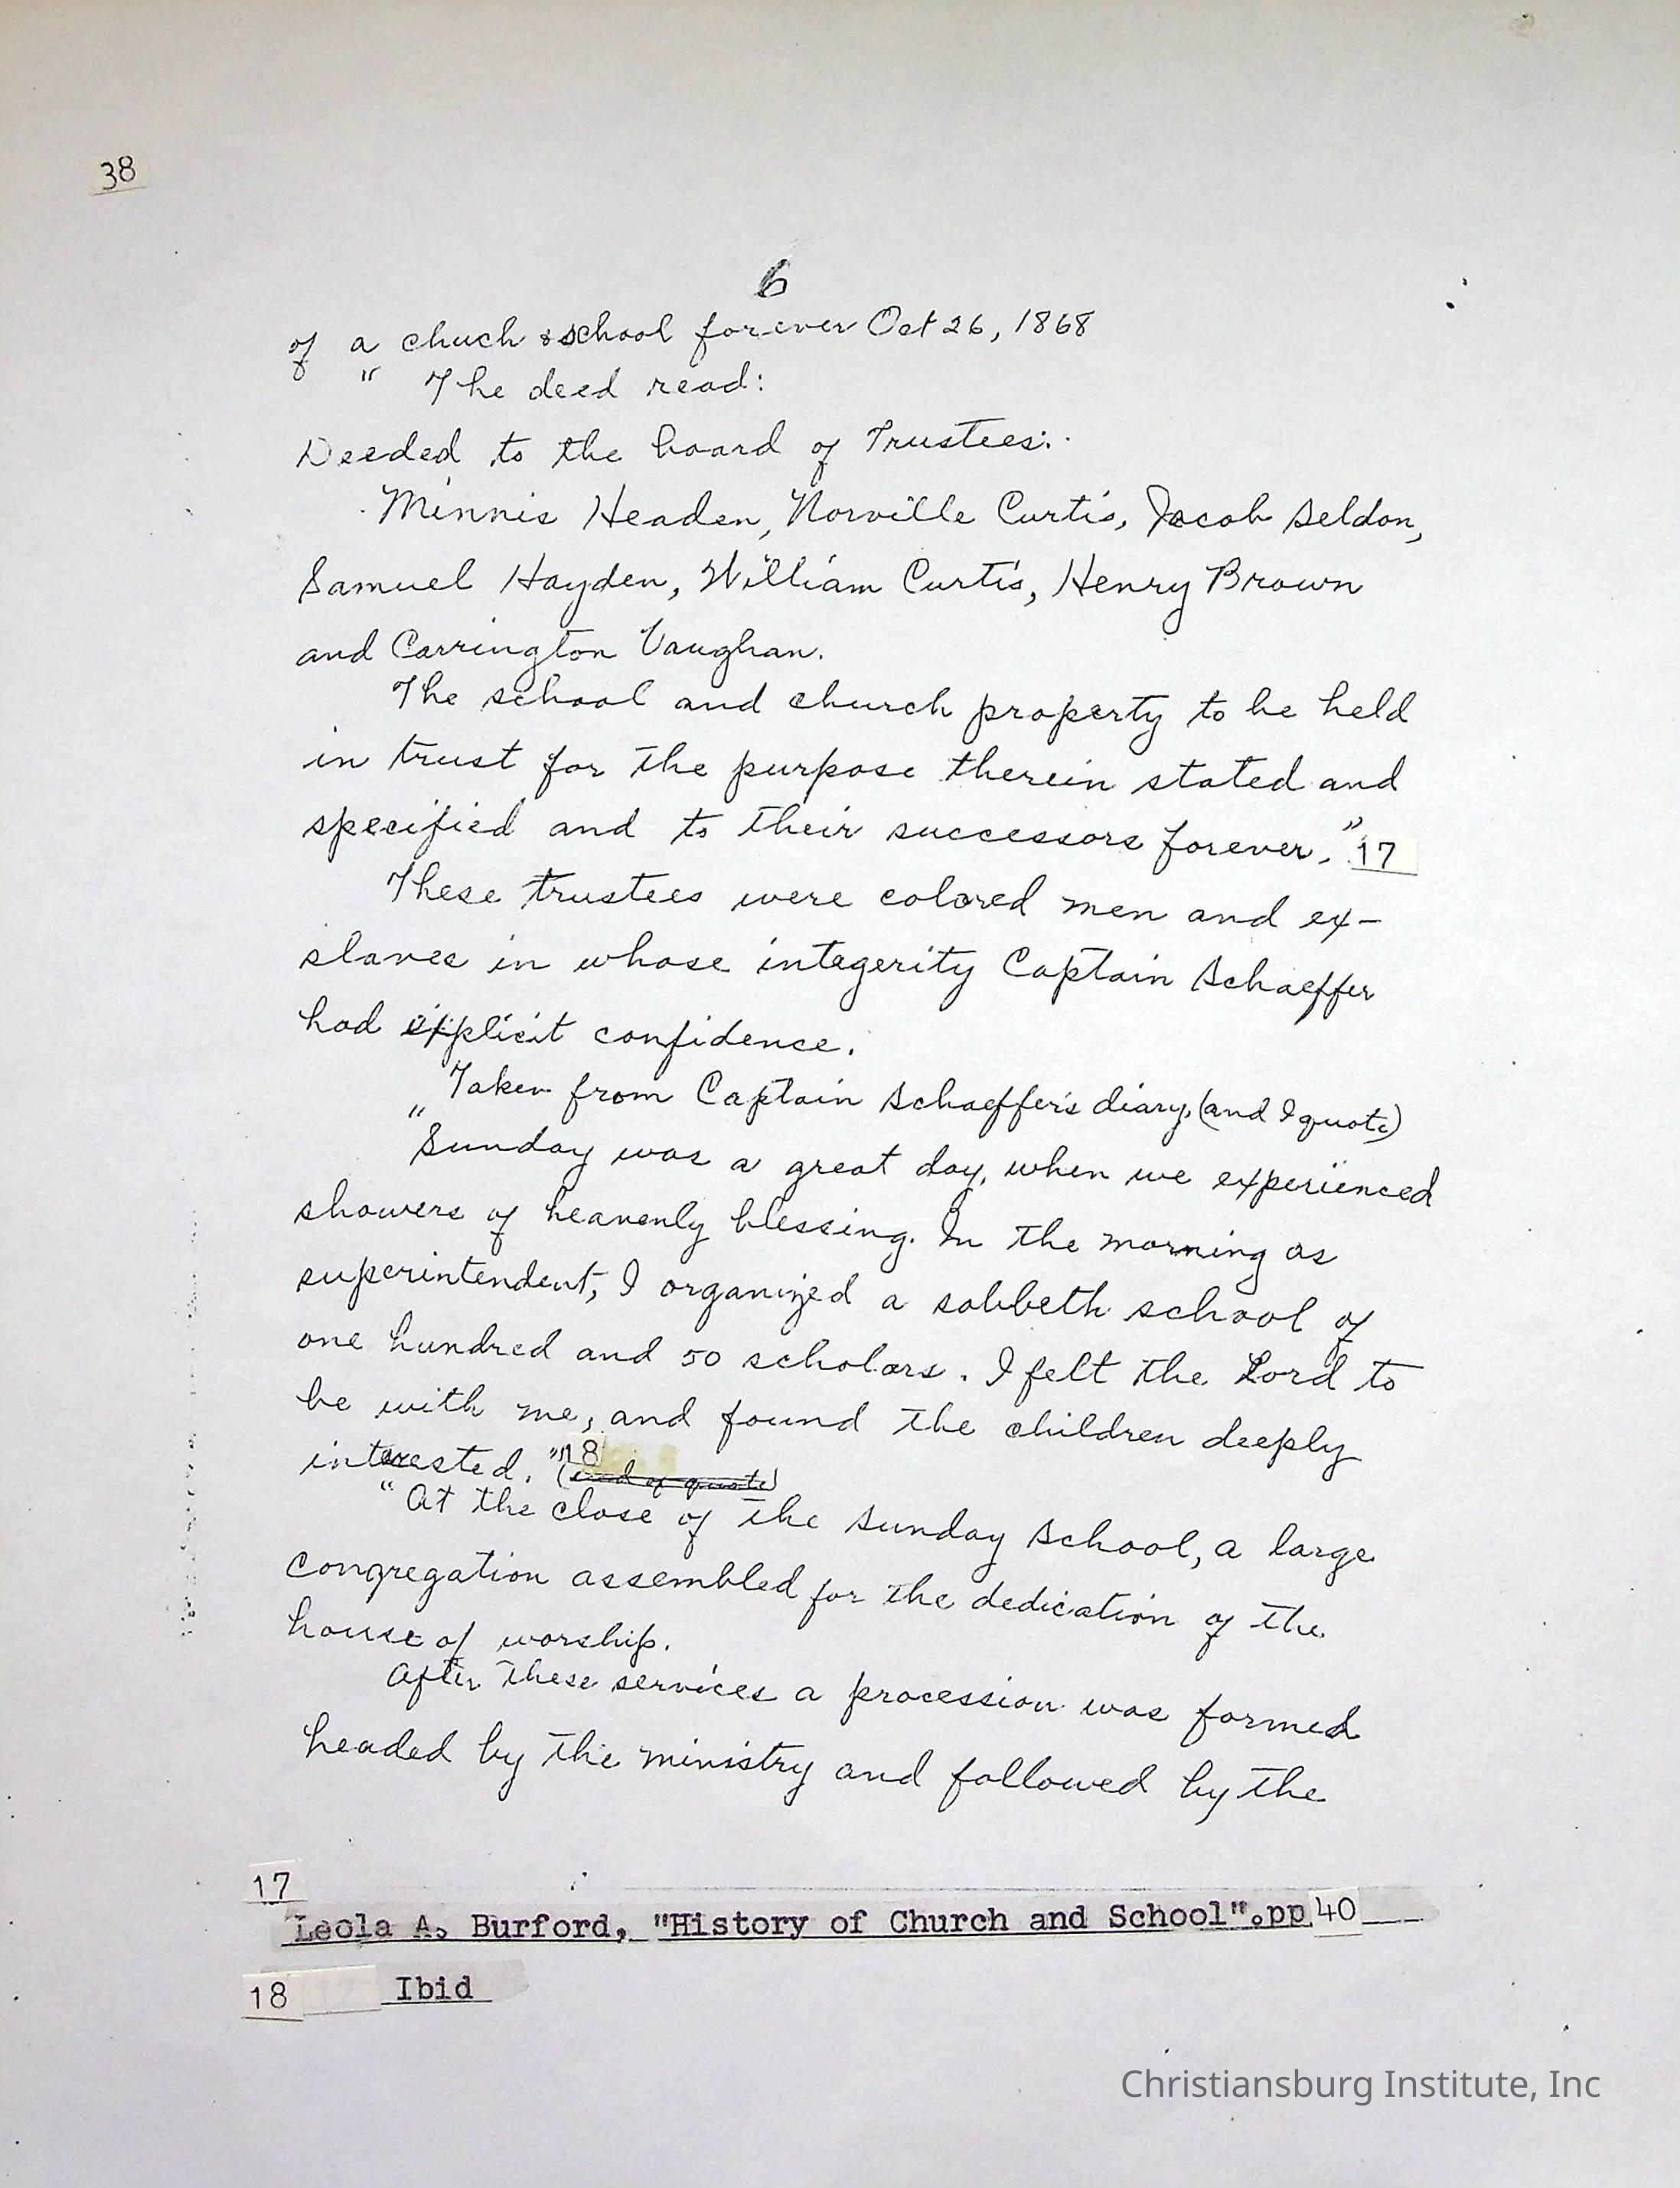 38
6
of a chuch & school forever Oct 26, 1868
" The deed read:
Deeded to the board of Trustees:
Minnie Headen, Norville Curtis, Jacob Seldon,
Samuel Hayden, William Curtis, Henry Brown
and Carrington Vaughan.
The school and church property to be held
in trust for the purpose therein stated and
specified and to their successors forever." 17
These trustees were colored men and ex-
slaves in whose integerity Captain Schaeffer
had explicit confidence.
Taken from Captain Schaeffer's diary, (and I quote)
"Sunday was a great day, when we experienced
showers of heavenly blessing. In the morning as
superintendent, I organized a sabbeth school of
one hundred and 50 scholars. I felt the Lord to
be with me, and found the children deeply
interested." 18 (end of quote)
"At the close of the Sunday School, a large
congregation assembled for the dedication of the
house of worship.
After these services a procession was formed
headed by the ministry and followed by the
17
Leola A. Burford, "History of Church and School".pp 40
18 Ibid
Christiansburg Institute, Inc